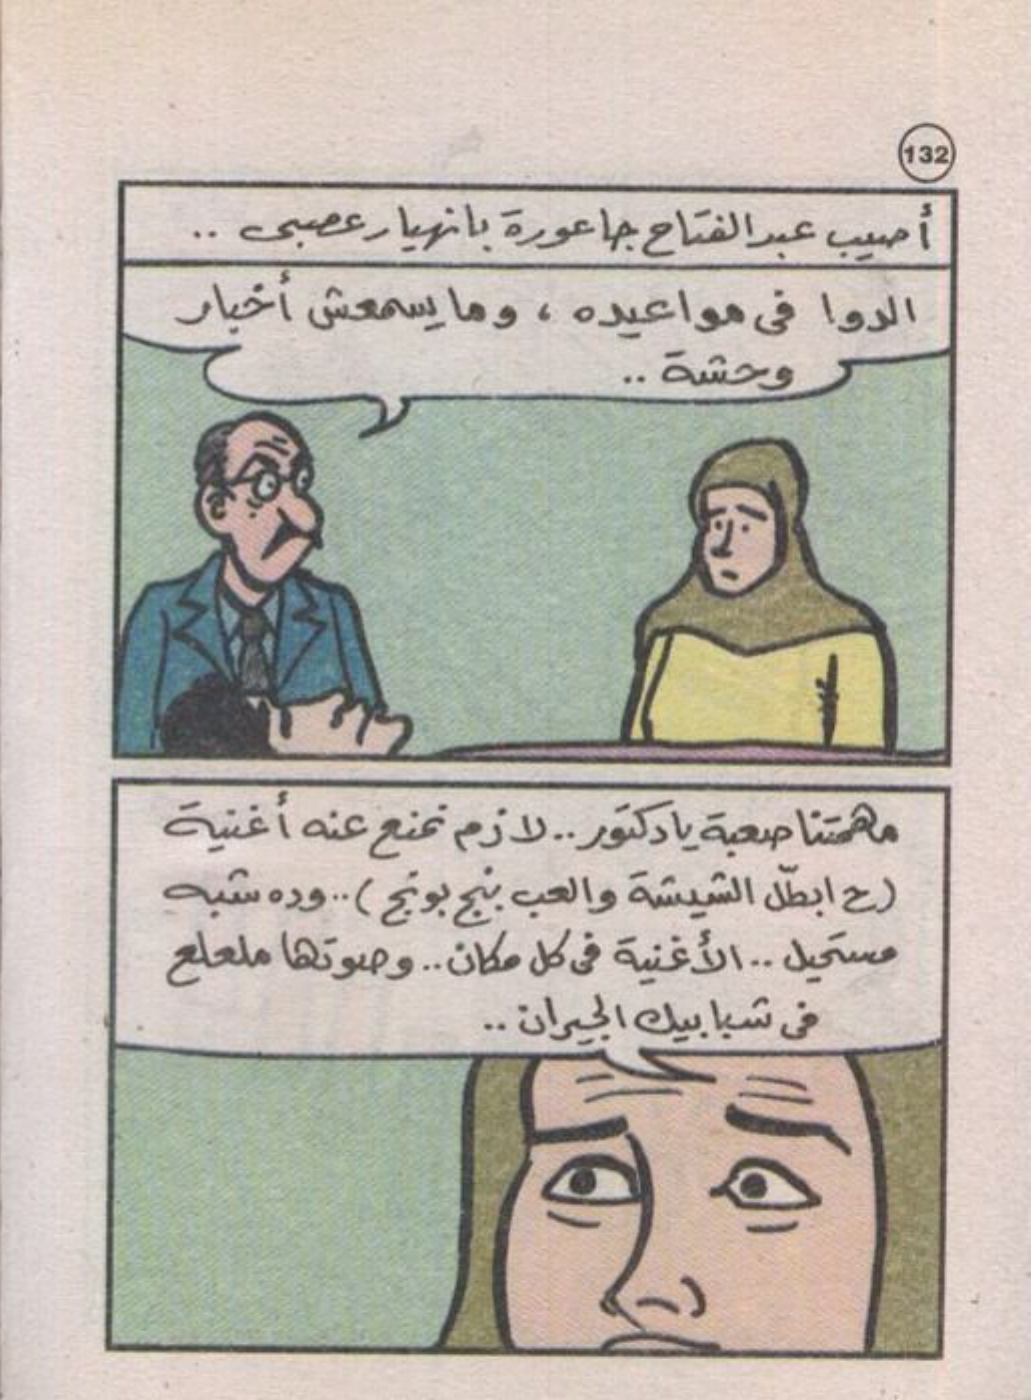 132
أصيب عبد الفتاح جاعورة بانهيار عصبى ..
الدوا فى مواعيده ، وما يسمعش أخبار
وحشة ..
مهمتنا صعبة يا دكتور .. لازم نمنع عنه أغنية
(ح ابطّل الشيشة والعب بنج بونج) .. وده شبه
مستحيل .. الأغنية فى كل مكان .. وصوتها ملعلع
فى شبابيك الجيران ..